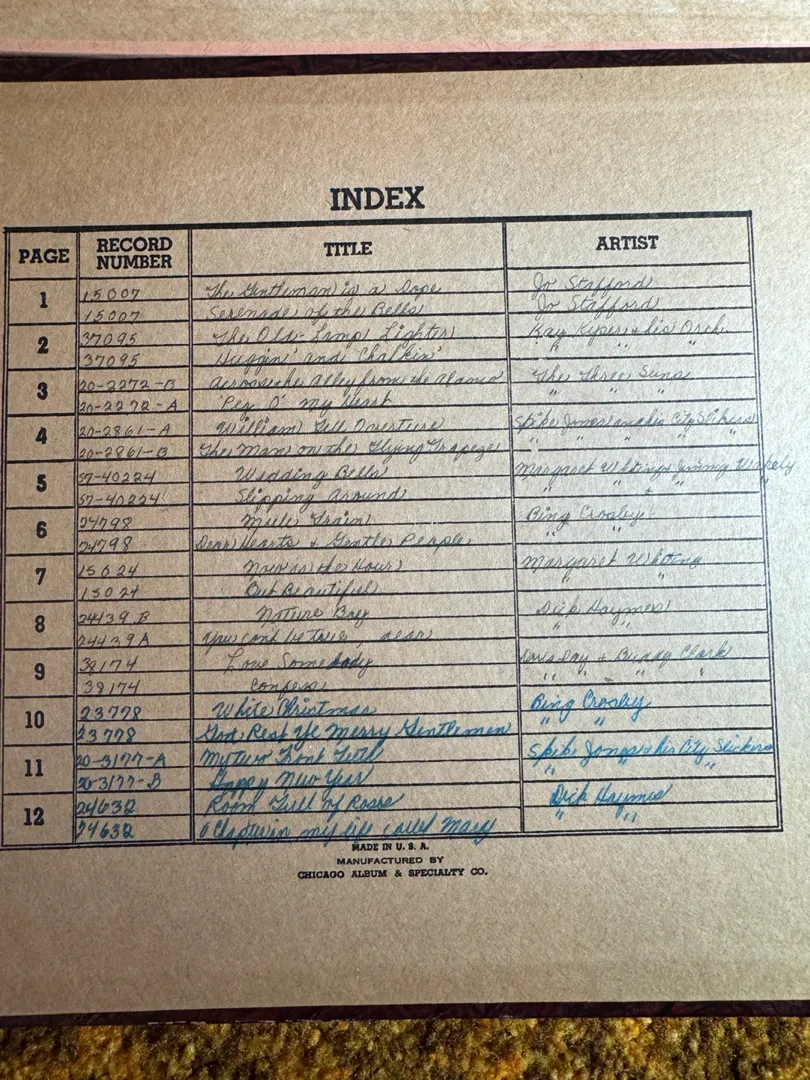 INDEX
PAGE RECORD NUMBER TITLE ARTIST
1 15007 The Gentleman is a Dope Jo Stafford
15007 Serenade of the Bells Jo Stafford
2 37095 The Olde Lamp Lighter Kay Kyser & his Orch.
37095 Huggin' and Chalkin' " " " "
3 20-2272-B Across the Alley from the Alamo The Three Suns
20-2272-A Peg O' my Heart " " "
4 20-2861-A William Tell Overture Spike Jones and his City Slickers
20-2861-B The Man on the Flying Trapeze " " " " "
5 57-40224 Wedding Bells Margaret Whiting & Jimmy Wakely
57-40224 Slipping Around " " " "
6 24798 Mule Train Bing Crosby
24798 Dear Hearts & Gentle People " "
7 15024 Now is the Hour Margaret Whiting
15024 But Beautiful " "
8 24439 B Nature Boy Dick Haymes
24439 A You can't be true, dear " "
9 38174 Love Somebody Doris Day & Buddy Clark
38174 Confess " " " "
10 23778 White Christmas Bing Crosby
23778 God Rest Ye Merry Gentlemen " "
11 20-3177-A My two Front Teeth Spike Jones & his City Slickers
20-3177-B Happy New Year " " "
12 24632 Room Full of Roses Dick Haymes
24632 a Chapter in my life called Mary " "
MADE IN U. S. A.
MANUFACTURED BY
CHICAGO ALBUM & SPECIALTY CO.